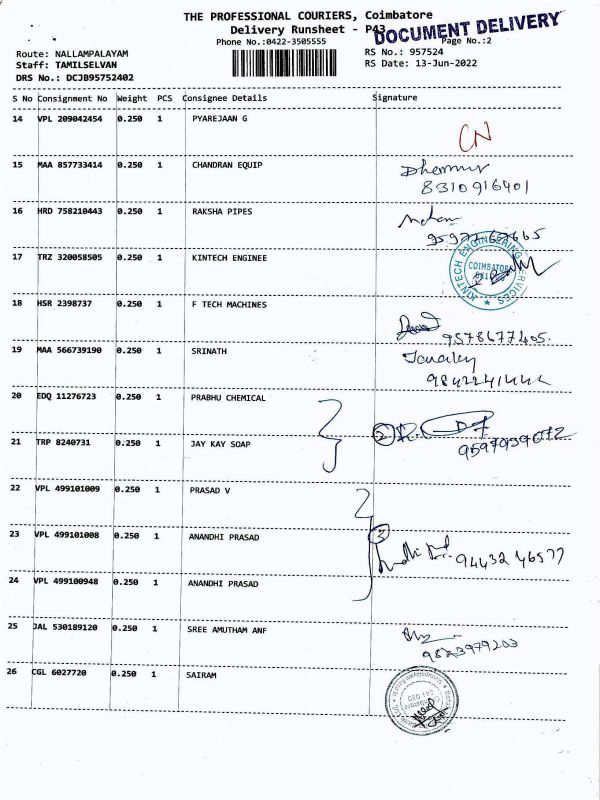 THE PROFESSIONAL COURIERS, Coimbatore
Delivery Runsheet - P43
DOCUMENT DELIVERY
Phone No.:0422-3505555
Page No.:2
Route: NALLAMPALAYAM
RS No.: 957524
Staff: TAMILSELVAN
RS Date: 13-Jun-2022
DRS No.: DCJB95752402
S No Consignment No Weight PCS Consignee Details Signature
14 VPL 209042454 0.250 1 PYAREJAAN G
CN
15 MAA 857733414 0.250 1 CHANDRAN EQUIP
8310916401
16 HRD 758210443 0.250 1 RAKSHA PIPES
17 TRZ 320058505 0.250 1 KINTECH ENGINEE
KINTECH ENGINEERING SERVICES
COIMBATORE
18 HSR 2398737 0.250 1 F TECH MACHINES
9578677405.
19 MAA 566739190 0.250 1 SRINATH
20 EDQ 11276723 0.250 1 PRABHU CHEMICAL
2
21 TRP 8240731 0.250 1 JAY KAY SOAP
22 VPL 499101009 0.250 1 PRASAD V
23 VPL 499101008 0.250 1 ANANDHI PRASAD
3
94432 46577
24 VPL 499100948 0.250 1 ANANDHI PRASAD
25 JAL 530189120 0.250 1 SREE AMUTHAM ANF
9823979203
26 CGL 6027720 0.250 1 SAIRAM